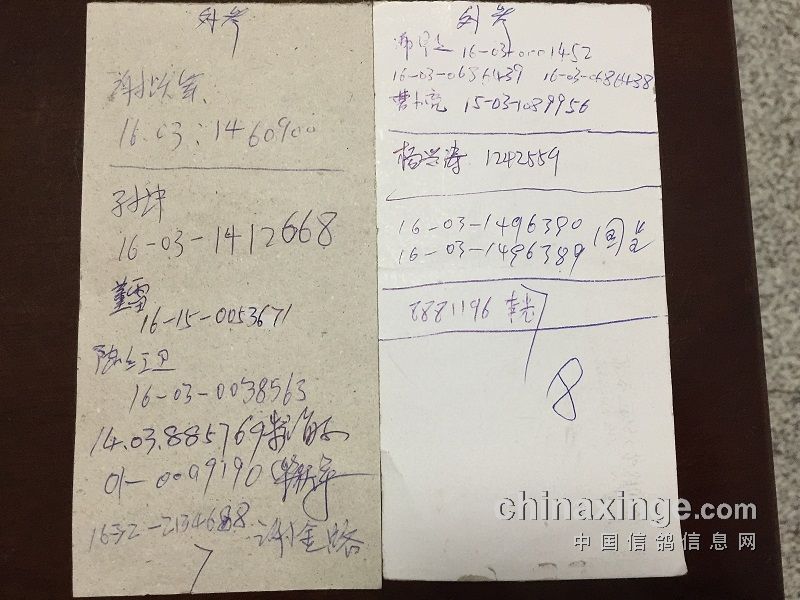 外岑
16.03:1460900
孙坤
16-03-1412668
董雷
16-15-0053671
陈红卫
16-03-0038563
14.03.885769
01-0099190
1632-2134688 谢金路
7
外岑
16-03-0001452
16-03-0686439 16-03-0686438
曹小亮 15-03-1089956
杨兴涛 1242559
16-03-1496390
16-03-1496389
8881196
8
chinaxinge.com
中国信鸽信息网